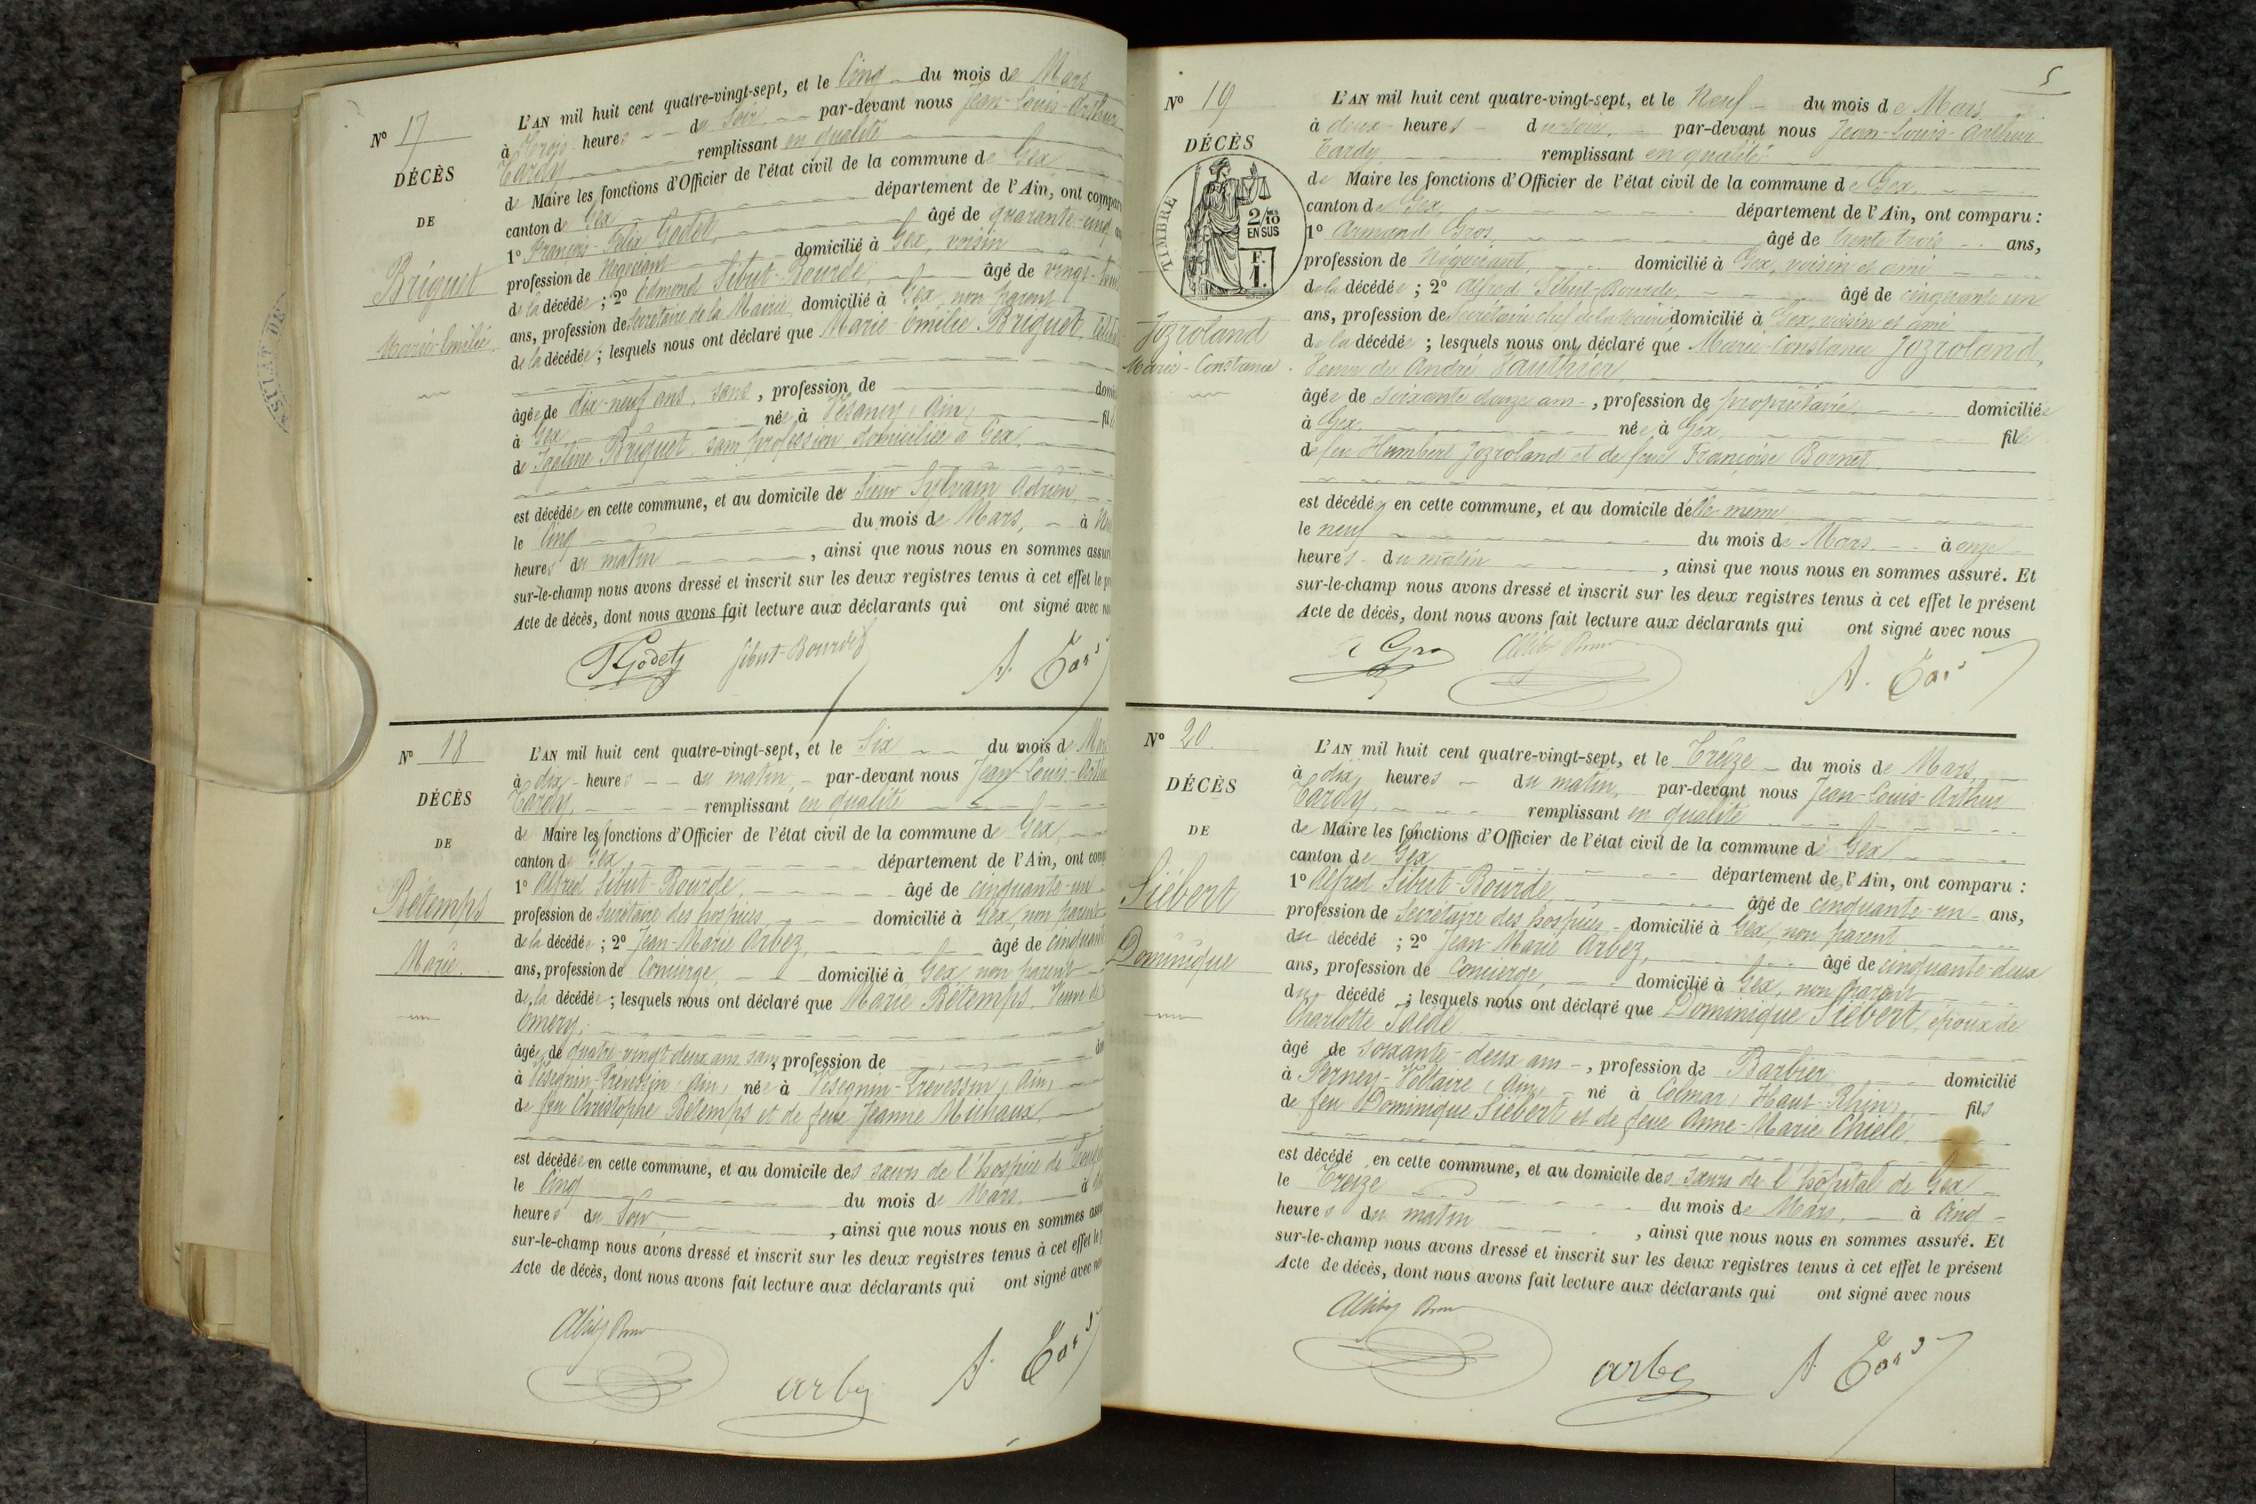 N° 17
DÉCÈS
DE
Briguet
Marie-Emilie
L'AN mil huit cent quatre-vingt-sept, et le Cinq du mois de Mars
à Trois heures du Soir par-devant nous Jean-Louis-Arthur
Tardy, remplissant en qualité
de Maire les fonctions d'Officier de l'état civil de la commune de Gex
canton de Gex département de l'Ain, ont compar
1° François-Félix Godet, âgé de quarante-cinq
profession de Négociant domicilié à Gex, voisin
de la décédée ; 2° Edmond Sibut-Bourde âgé de vingt-
ans, profession de Secrétaire de la Mairie, domicilié à Gex, non parent
de la décédée ; lesquels nous ont déclaré que Marie Emilie Briguet
âgée de dix-neuf ans, sans, profession de domi
à Gex née à Vesancy, Ain, fil
de Briguet, sans profession, domiciliée à Gex
est décédée en cette commune, et au domicile de Sieur Sylvain Adrien
le Cinq du mois de Mars, à
heures du matin, ainsi que nous nous en sommes assur
sur-le-champ nous avons dressé et inscrit sur les deux registres tenus à cet effet le pr
Acte de décès, dont nous avons fait lecture aux déclarants qui ont signé avec no
F Godet Sibut-Bourde A. Tardy
N° 18
DÉCÈS
DE
Bétemps
Marie.
L'AN mil huit cent quatre-vingt-sept, et le Six du mois de Mar
à dix heures du matin, par-devant nous Jean-Louis-Arthu
Tardy, remplissant en qualité
de Maire les fonctions d'Officier de l'état civil de la commune de Gex
canton de Gex département de l'Ain, ont comp
1° Alfred Sibut-Bourde, âgé de cinquante-un
profession de Secrétaire des hospices domicilié à Gex, non parent
de la décédée ; 2° Jean-Marie Arbez, âgé de cinquante
ans, profession de Concierge, domicilié à Gex, non parent
de la décédée ; lesquels nous ont déclaré que Marie Bétemps, Veuve de
Emery,
âgée de quatre-vingt-deux ans, sans, profession de dom
à Vésegnin-Prévessin, Ain, née à Vésegnin-Prévessin, Ain,
de feu Christophe Bétemps et de feue Jeanne Michaux,
est décédée en cette commune, et au domicile des sœurs de l'hospice de
le Cinq du mois de Mars, à
heures du Soir, ainsi que nous nous en sommes assu
sur-le-champ nous avons dressé et inscrit sur les deux registres tenus à cet effet le p
Acte de décès, dont nous avons fait lecture aux déclarants qui ont signé avec no
arbez A. Tardy
5
N° 19
DÉCÈS
TIMBRE
2/10
EN SUS
F.
1.
Jozroland
Marie-Constance.
L'AN mil huit cent quatre-vingt-sept, et le Neuf du mois de Mars
à deux heures du soir, par-devant nous Jean-Louis-Arthur
Tardy, remplissant en qualité
de Maire les fonctions d'Officier de l'état civil de la commune de Gex
canton de Gex, département de l'Ain, ont comparu :
1° Armand Gros âgé de trente-trois ans,
profession de Négociant, domicilié à Gex, voisin et ami
de la décédée ; 2° Alfred Sibut-Bourde, âgé de cinquante un
ans, profession de Secrétaire chef de la mairie domicilié à Gex, voisin et ami
de la décédée ; lesquels nous ont déclaré que Marie-Constance Jozroland,
Veuve de André Vauthier,
âgée de soixante douze ans, profession de propriétaire, domiciliée
à Gex, née à Gex, fille
de feu Humbert Jozroland et de feue Françoise Bornet
est décédée en cette commune, et au domicile d'elle-même
le neuf du mois de Mars à onze
heures du matin, ainsi que nous nous en sommes assuré. Et
sur-le-champ nous avons dressé et inscrit sur les deux registres tenus à cet effet le présent
Acte de décès, dont nous avons fait lecture aux déclarants qui ont signé avec nous
A Gros A. Tardy
N° 20.
DÉCÈS
DE
Siébert
Dominique
L'AN mil huit cent quatre-vingt-sept, et le Treize du mois de Mars,
à dix heures du matin, par-devant nous Jean-Louis-Arthur
Tardy, remplissant en qualité
de Maire les fonctions d'Officier de l'état civil de la commune de Gex
canton de Gex département de l'Ain, ont comparu :
1° Alfred Sibut-Bourde, âgé de cinquante-un ans,
profession de Secrétaire des hospices domicilié à Gex, non parent
du décédé ; 2° Jean-Marie Arbez, âgé de cinquante-deux
ans, profession de Concierge, domicilié à Gex, non parent
du décédé ; lesquels nous ont déclaré que Dominique Siébert, époux de
Charlotte
âgé de soixante-deux ans, profession de Barbier domicilié
à Ferney-Voltaire (Ain) né à Colmar, Haut-Rhin, fils
de feu Dominique Siébert et de feue Anne-Marie Chielé,
est décédé en cette commune, et au domicile des sœurs de l'hôpital de Gex
le Treize du mois de Mars, à Cinq
heures du matin, ainsi que nous nous en sommes assuré. Et
sur-le-champ nous avons dressé et inscrit sur les deux registres tenus à cet effet le présent
Acte de décès, dont nous avons fait lecture aux déclarants qui ont signé avec nous
arbez A. Tardy